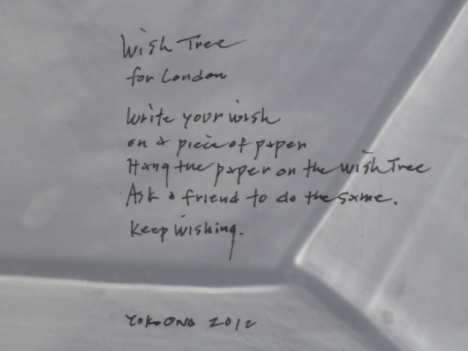 Wish Tree
for London
Write your wish
on a piece of paper
Hang the paper on the wish Tree
Ask a friend to do the same.
Keep wishing.
YOKO ONO 2012